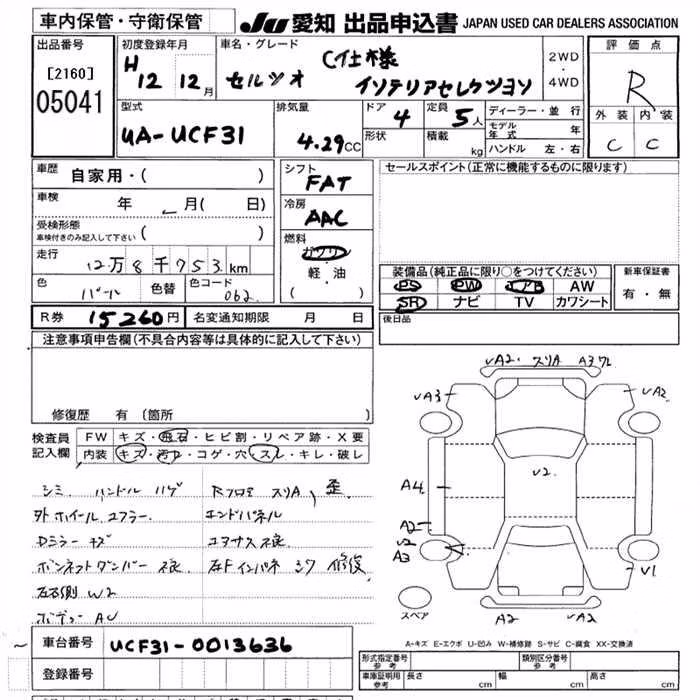 車内保管・守衛保管
JU 愛知 出品申込書 JAPAN USED CAR DEALERS ASSOCIATION
出品番号
[2160]
05041
初度登録年月
H 12 12月
車名・グレード
C仕様
セルシオ
2WD
・
4WD
型式
UA-UCF31
排気量
4.29CC
ドア
4
定員
5人
形状
積載
kg
ディーラー・並行
モデル年式 年
ハンドル 左・右
評価点
R
外装 内装
C C
車歴
自家用・( )
車検
年 月( 日)
受検形態
車検付きのみ記入して下さい ( )
走行
12万8千753km
色
パール
色替
色コード
062
シフト
FAT
冷房
AAC
燃料
ガソリン
・
軽・油
( )
セールスポイント(正常に機能するものに限ります)
装備品(純正品に限り○をつけてください)
PS PW エアB AW
SR ナビ TV カワシート
新車保証書
有・無
後日品
R券 15260円 名変通知期限 月 日
注意事項申告欄(不具合内容等は具体的に記入して下さい)
修復歴 有(箇所 )
検査員
記入欄
FW キズ・飛石・ヒビ割・リペア跡・X要
内装 キズ・汚れ・コゲ・穴・スレ・キレ・破レ
シミ ハンドル ハゲ
外ホイール マフラー
Dミラー キズ
ボンネットダンパー 不良
左右側 W2
スリA、歪
エンドパネル
左Fインパネ 修復
VA2. スリA A3
VA3
VA2
V2.
A4
A2
V2
A3
V1
A2
VA2
スペア
A-キズ E-エクボ U-凹み W-補修跡 S-サビ C-腐食 XX-交換済
車台番号
UCF31-0013636
登録番号
形式指定番号
参考
類別区分番号
参考
車庫証明用
参考
長さ cm 幅 cm 高さ cm